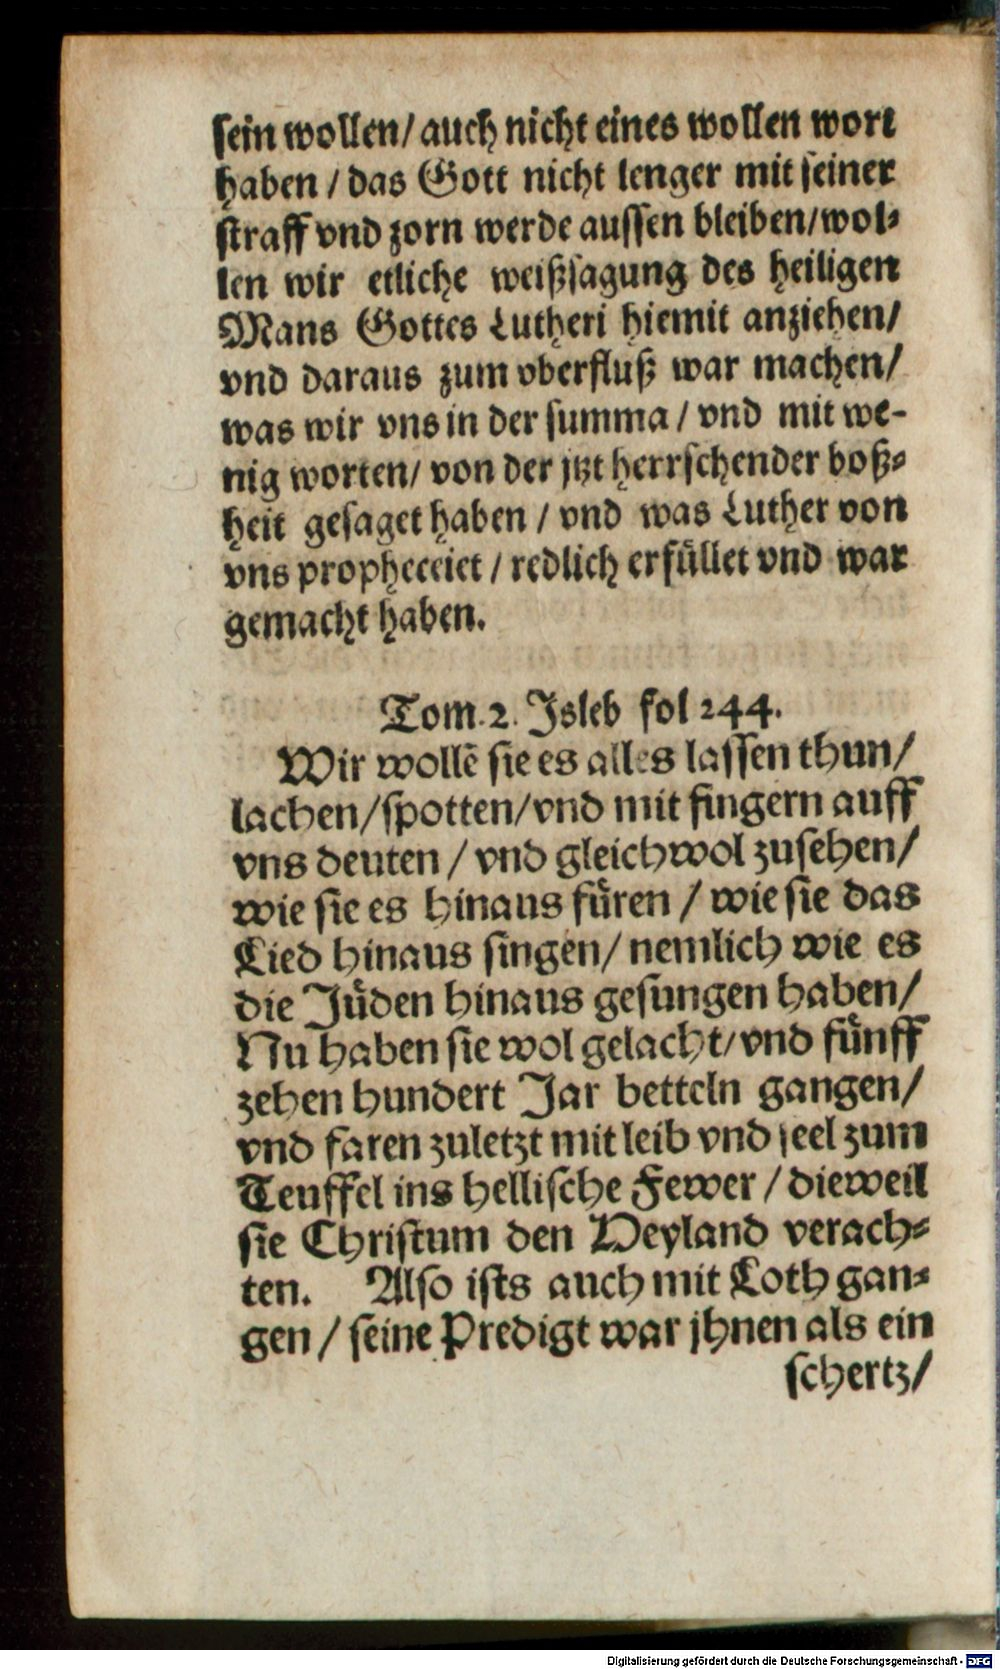 sein wollen/ auch nicht eines wollen wort
haben / das Gott nicht lenger mit seiner
straff vnd zorn werde aussen bleiben/ wol-
len wir etliche weißsagung des heiligen
Mans Gottes Lutheri hiemit anziehen/
vnd daraus zum vberfluß war machen/
was wir vns in der summa / vnd mit we-
nig worten/ von der jtzt herrschender boß-
heit gesaget haben / vnd was Luther von
vns propheceiet / redlich erfüllet vnd war
gemacht haben.
Tom. 2. Isleb fol 244.
Wir wollē sie es alles lassen thun/
lachen/ spotten/ vnd mit fingern auff
vns deuten / vnd gleichwol zusehen/
wie sie es hinaus füren / wie sie das
Lied hinaus singen/ nemlich wie es
die Jüden hinaus gesungen haben/
Nu haben sie wol gelacht/ vnd fünff
zehen hundert Jar betteln gangen/
vnd faren zuletzt mit leib vnd seel zum
Teuffel ins hellische Fewer / dieweil
sie Christum den Heyland verach-
ten. Also ists auch mit Loth gan-
gen / seine Predigt war jhnen als ein
schertz/
Digitalisierung gefördert durch die Deutsche Forschungsgemeinschaft - DFG